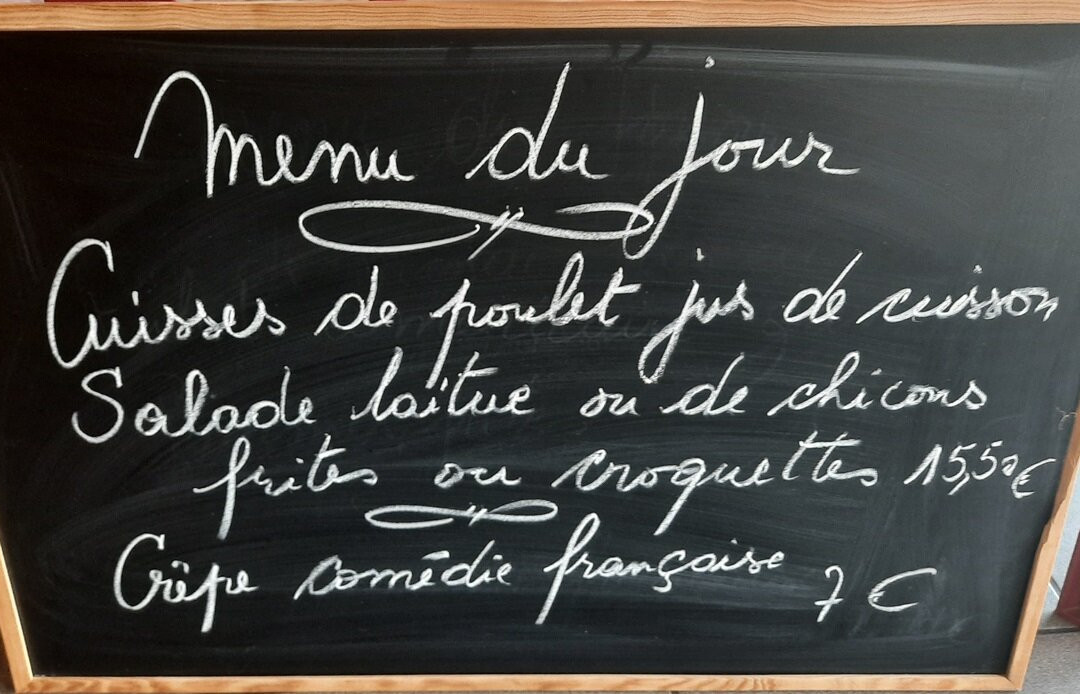 Menu du jour
Cuisses de poulet jus de cuisson
Salade laitue ou de chicons
frites ou croquettes 15,50 €
Crêpe comédie française 7 €